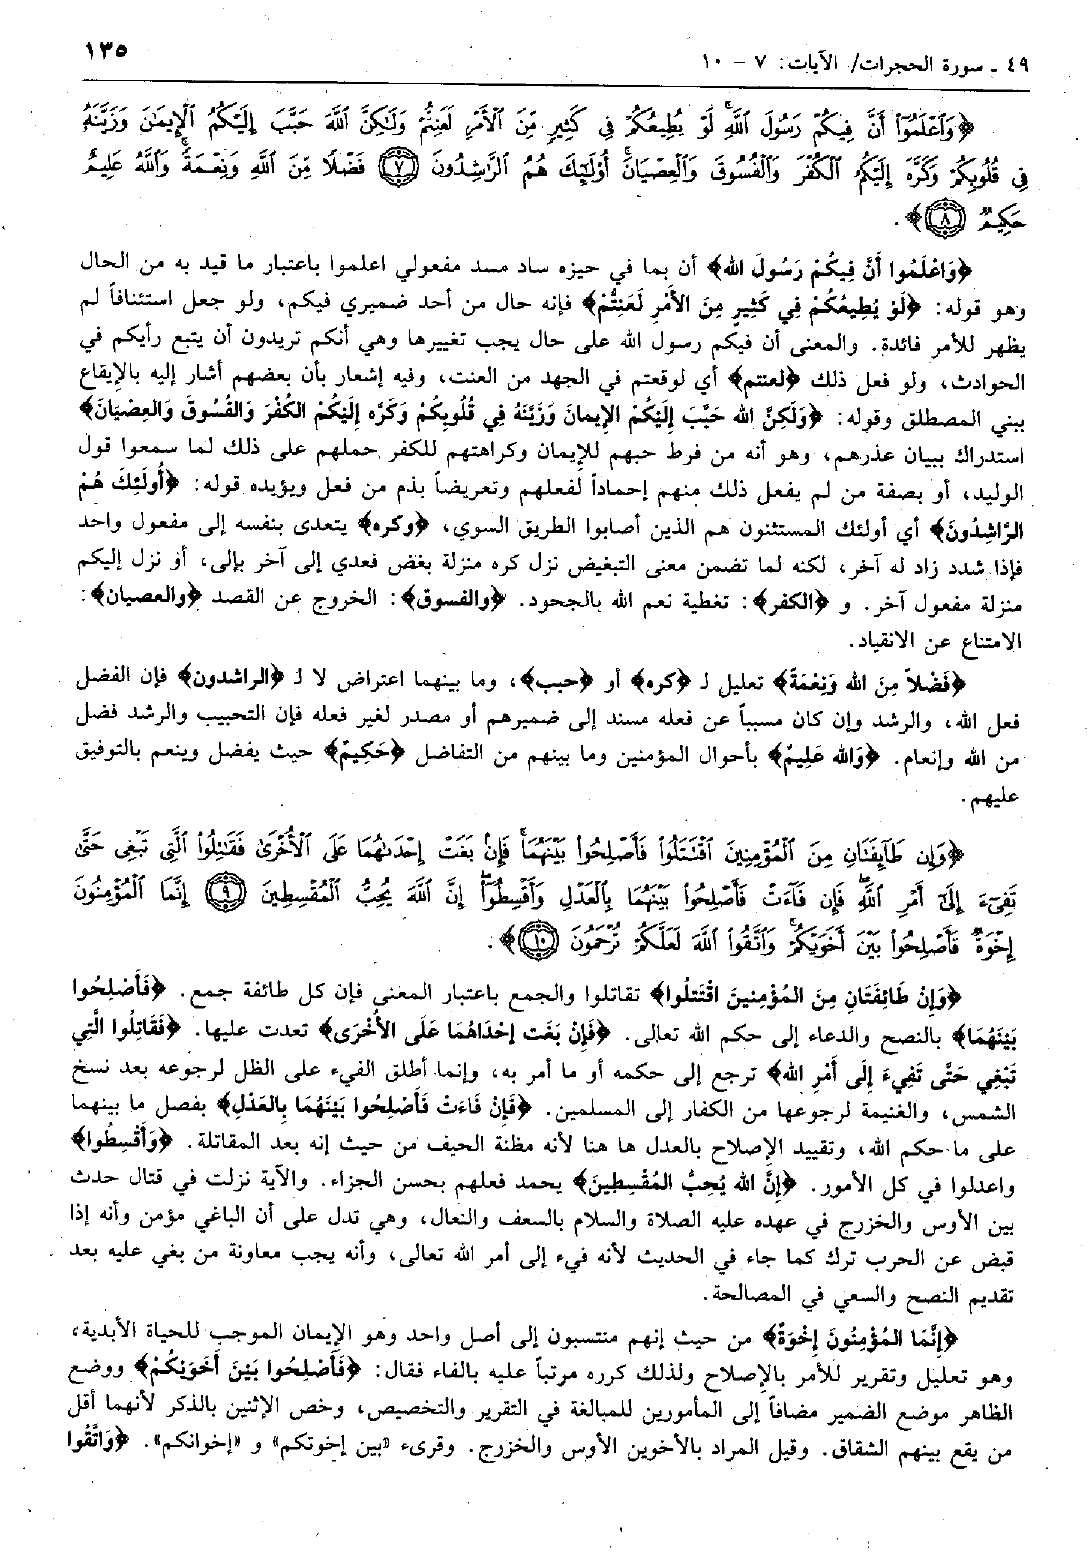 ٤٩ ـ سورة الحجرات/ الآيات: ٧ – ١٠
١٣٥
﴿وَٱعْلَمُوٓا۟ أَنَّ فِيكُمْ رَسُولَ ٱللَّهِ ۚ لَوْ يُطِيعُكُمْ فِى كَثِيرٍ مِّنَ ٱلْأَمْرِ لَعَنِتُّمْ وَلَٰكِنَّ ٱللَّهَ حَبَّبَ إِلَيْكُمُ ٱلْإِيمَٰنَ وَزَيَّنَهُۥ
فِى قُلُوبِكُمْ وَكَرَّهَ إِلَيْكُمُ ٱلْكُفْرَ وَٱلْفُسُوقَ وَٱلْعِصْيَانَ ۚ أُو۟لَٰٓئِكَ هُمُ ٱلرَّٰشِدُونَ ﴿٧﴾ فَضْلًا مِّنَ ٱللَّهِ وَنِعْمَةً ۚ وَٱللَّهُ عَلِيمٌ
حَكِيمٌ ﴿٨﴾﴾.
﴿وَاعْلَمُوا أَنَّ فِيكُمْ رَسُولَ الله﴾ أن بما في حيزه ساد مسد مفعولي اعلموا باعتبار ما قيد به من الحال
وهو قوله: ﴿لَوْ يُطِيعُكُمْ فِي كَثِيرٍ مِنَ الأَمْرِ لَعَنِتُّمْ﴾ فإنه حال من أحد ضميري فيكم، ولو جعل استئنافاً لم
يظهر للأمر فائدة. والمعنى أن فيكم رسول الله على حال يجب تغييرها وهي أنكم تريدون أن يتبع رأيكم في
الحوادث، ولو فعل ذلك ﴿لعنتم﴾ أي لوقعتم في الجهد من العنت، وفيه إشعار بأن بعضهم أشار إليه بالإيقاع
ببني المصطلق وقوله: ﴿وَلَكِنَّ الله حَبَّبَ إِلَيْكُمُ الإِيمَانَ وَزَيَّنَهُ فِي قُلُوبِكُمْ وَكَرَّه إِلَيْكُمْ الكُفْرَ وَالفُسُوقَ وَالعِصْيَانَ﴾
استدراك ببيان عذرهم، وهو أنه من فرط حبهم للإيمان وكراهتهم للكفر حملهم على ذلك لما سمعوا قول
الوليد، أو بصفة من لم يفعل ذلك منهم إحماداً لفعلهم وتعريضاً بذم من فعل ويؤيده قوله: ﴿أُولَئِكَ هُمْ
الرَّاشِدُونَ﴾ أي أولئك المستثنون هم الذين أصابوا الطريق السوي، ﴿وكره﴾ يتعدى بنفسه إلى مفعول واحد
فإذا شدد زاد له آخر، لكنه لما تضمن معنى التبغيض نزل كره منزلة بغض فعدي إلى آخر بإلى، أو نزل إليكم
منزلة مفعول آخر. و ﴿الكفر﴾: تغطية نعم الله بالجحود. ﴿والفسوق﴾: الخروج عن القصد ﴿والعصيان﴾:
الامتناع عن الانقياد.
﴿فَضْلاً مِنَ الله وَنِعْمَةً﴾ تعليل لـ ﴿كره﴾ أو ﴿حبب﴾، وما بينهما اعتراض لا لـ ﴿الراشدون﴾ فإن الفضل
فعل الله، والرشد وإن كان مسبباً عن فعله مسند إلى ضميرهم أو مصدر لغير فعله فإن التحبيب والرشد فضل
من الله وإنعام. ﴿وَالله عَلِيمٌ﴾ بأحوال المؤمنين وما بينهم من التفاضل ﴿حَكِيمٌ﴾ حيث يفضل وينعم بالتوفيق
عليهم.
﴿وَإِن طَآئِفَتَانِ مِنَ ٱلْمُؤْمِنِينَ ٱقْتَتَلُوا۟ فَأَصْلِحُوا۟ بَيْنَهُمَا ۖ فَإِنۢ بَغَتْ إِحْدَىٰهُمَا عَلَى ٱلْأُخْرَىٰ فَقَٰتِلُوا۟ ٱلَّتِى تَبْغِى حَتَّىٰ
تَفِىٓءَ إِلَىٰٓ أَمْرِ ٱللَّهِ ۚ فَإِن فَآءَتْ فَأَصْلِحُوا۟ بَيْنَهُمَا بِٱلْعَدْلِ وَأَقْسِطُوٓا۟ ۖ إِنَّ ٱللَّهَ يُحِبُّ ٱلْمُقْسِطِينَ ﴿٩﴾ إِنَّمَا ٱلْمُؤْمِنُونَ
إِخْوَةٌ فَأَصْلِحُوا۟ بَيْنَ أَخَوَيْكُمْ ۚ وَٱتَّقُوا۟ ٱللَّهَ لَعَلَّكُمْ تُرْحَمُونَ ﴿١٠﴾﴾.
﴿وَإِنْ طَائِفَتَانِ مِنَ المُؤْمِنِينَ اقْتَتَلُوا﴾ تقاتلوا والجمع باعتبار المعنى فإن كل طائفة جمع. ﴿فَأَصْلِحُوا
بَيْنَهُمَا﴾ بالنصح والدعاء إلى حكم الله تعالى. ﴿فَإِنْ بَغَت إِحْدَاهُمَا عَلَى الأُخْرَى﴾ تعدت عليها. ﴿فَقَاتِلُوا الَّتِي
تَبْغِي حَتَّى تَفِيءَ إِلَى أَمْرِ الله﴾ ترجع إلى حكمه أو ما أمر به، وإنما أطلق الفيء على الظل لرجوعه بعد نسخ
الشمس، والغنيمة لرجوعها من الكفار إلى المسلمين. ﴿فَإِنْ فَاءَتْ فَأَصْلِحُوا بَيْنَهُمَا بِالعَدْلِ﴾ بفصل ما بينهما
على ما حكم الله، وتقييد الإصلاح بالعدل ها هنا لأنه مظنة الحيف من حيث إنه بعد المقاتلة. ﴿وَأَقْسِطُوا﴾
واعدلوا في كل الأمور. ﴿إِنَّ الله يُحِبُّ المُقْسِطِينَ﴾ يحمد فعلهم بحسن الجزاء. والآية نزلت في قتال حدث
بين الأوس والخزرج في عهده عليه الصلاة والسلام بالسعف والنعال، وهي تدل على أن الباغي مؤمن وأنه إذا
قبض عن الحرب ترك كما جاء في الحديث لأنه فيء إلى أمر الله تعالى، وأنه يجب معاونة من بغي عليه بعد
تقديم النصح والسعي في المصالحة.
﴿إِنَّمَا المُؤْمِنُونَ إِخْوَةٌ﴾ من حيث إنهم منتسبون إلى أصل واحد وهو الإيمان الموجب للحياة الأبدية،
وهو تعليل وتقرير للأمر بالإصلاح ولذلك كرره مرتباً عليه بالفاء فقال: ﴿فَأَصْلِحُوا بَيْنَ أَخَوَيْكُمْ﴾ ووضع
الظاهر موضع الضمير مضافاً إلى المأمورين للمبالغة في التقرير والتخصيص، وخص الإثنين بالذكر لأنهما أقل
من يقع بينهم الشقاق. وقيل المراد بالأخوين الأوس والخزرج. وقرىء «بين إخوتكم» و «إخوانكم». ﴿وَاتَّقُوا